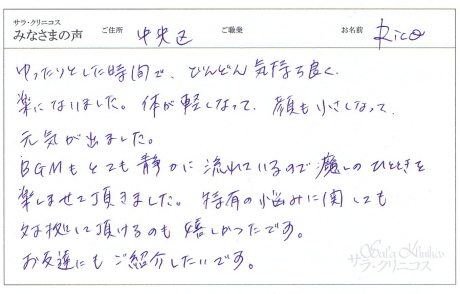 サラ・クリニコス
みなさまの声 ご住所 中央区 ご職業 お名前 Rico
ゆったりとした時間で、どんどん気持ち良く
楽になりました。体が軽くなって、顔も小さくなって、
元気が出ました。
BGMもとても静かに流れているので癒しのひとときを
楽しませて頂きました。特有の悩みに関しても
対処して頂けるのも嬉しかったです。
お友達にもご紹介したいです。
Sala Klinikos
サラ・クリニコス